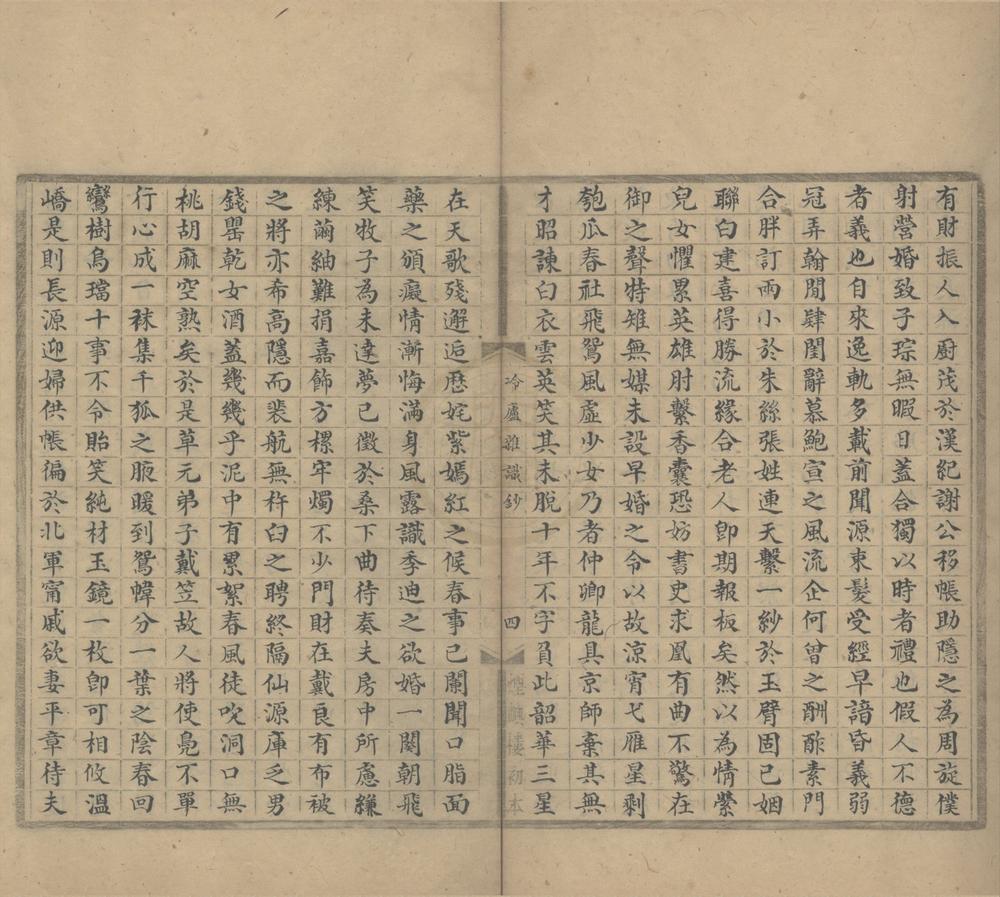 有財振人入厨茂於漢紀謝公移帳助隱之為周旋僕
射營婚致子琮無暇日蓋合獨以時者禮也假人不德
者義也自來逸軌多載前聞源束髮受經早諳昏義弱
冠弄翰閒肄閨辭慕鮑宣之風流企何曾之酬酢素門
合胖訂兩小於朱絲張姓連天繫一紗於玉臂固已姻
聯白建喜得勝流緣合老人卽期報板矣然以為情縈
兒女懼累英雄肘繫香囊恐妨書史求凰有曲不驚在
御之聲特雉無媒未設早婚之令以故涼宵弋雁星剩
匏瓜春社飛鴛風虛少女乃者仲卿龍具京師棄其無
才昭諫白衣雲英笑其未脫十年不字負此韶華三星
冷廬雜識鈔
四
在天歌殘邂逅歷姹紫嫣紅之候春事已闌聞口脂面
藥之頒癡情漸悔滿身風露識季迪之欲婚一闋朝飛
笑牧子為未達夢已徵於桑下曲待奏夫房中所慮縑
練繭紬難捐嘉飾方樏牢燭不少門財在戴良有布被
之將亦希高隱而裴航無杵臼之聘終隔仙源庫乏男
錢罌乾女酒蓋幾幾乎泥中有累絮春風徒吹洞口無
桃胡麻空熟矣於是草元弟子戴笠故人將使鳧不單
行心成一袜集千狐之腋暖到鴛幃分一葉之陰春回
鸞樹烏璫十事不令貽笑純材玉鏡一枚卽可相攸溫
嶠是則長源迎婦供帳徧於北軍甯戚欲妻平章待夫